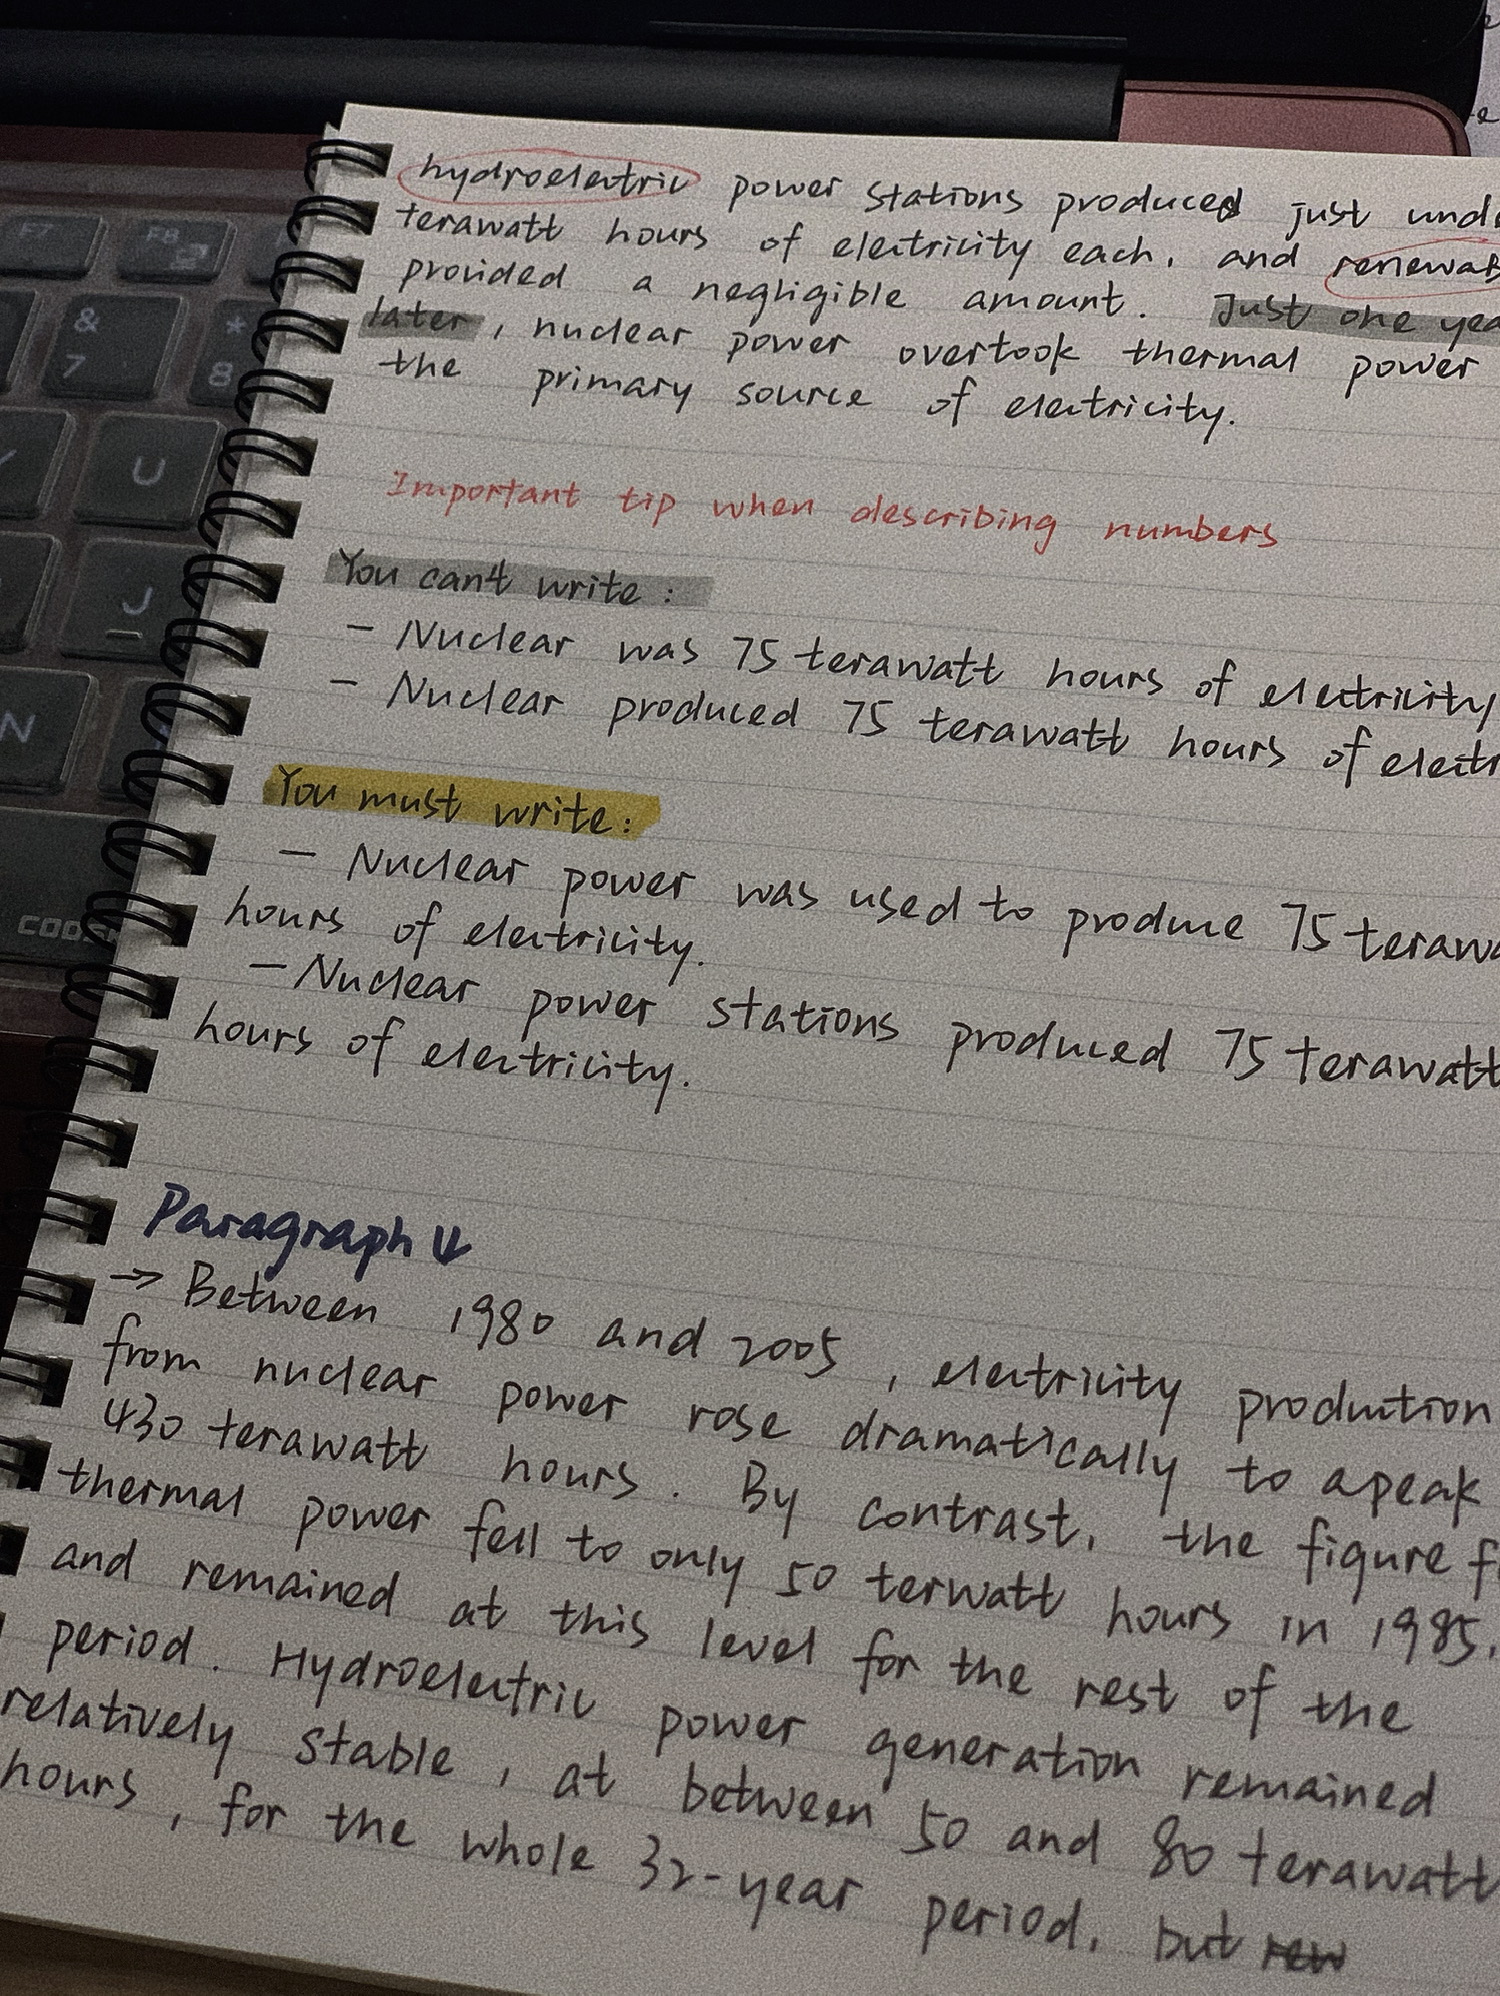 hydroelectric power stations produced just
terawatt hours of electricity each, and
provided a negligible amount. Just one
later, nuclear power overtook thermal power
the primary source of electricity.
Important tip when describing numbers
You can't write:
- Nuclear was 75 terawatt hours of electricity
- Nuclear produced 75 terawatt hours of
You must write:
- Nuclear power was used to produce 75
hours of electricity.
- Nuclear power stations produced 75 terawatt
hours of electricity.
Paragraph 4
→ Between 1980 and 2005, electricity production
from nuclear power rose dramatically to a peak
430 terawatt hours. By contrast, the figure
thermal power fell to only 50 terwatt hours in 1985,
and remained at this level for the rest of the
period. Hydroelectric power generation remained
relatively stable, at between 50 and 80 terawatt
hours, for the whole 32-year period, but
F7 F8
& 7 * 8
U
J
N